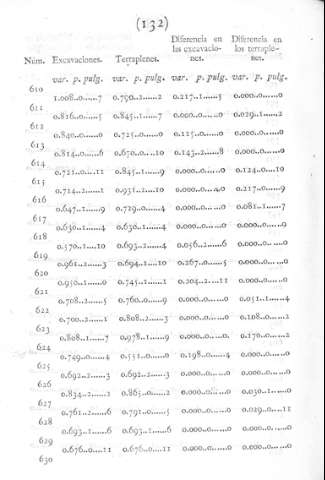 (132)
Diferencia en Diferencia en
las excavacio- los terraple-
Núm. Excavaciones. Terraplenes. nes. nes.
var. p. pulg. var. p. pulg. var. p. pulg. var. p. pulg.
610
1.008..0......7 0.790..2......2 0.217..1......5 0.000..0......0
611
0.816..0......5 0.845..1......7 0.000..0......0 0.029..1......2
612
0.840..0......0 0.725..0......0 0.115..0......0 0.000..0......0
613
0.814..0......6 0.670..0...10 0.143..2......8 0.000..0......0
614
0.721..0....11 0.845..1......9 0.000..0......0 0.124..0...10
615
0.714..2......1 0.931..2...10 0.000..0......0 0.217..0......9
616
0.647..1......9 0.729..0......4 0.000..0......0 0.081..1......7
617
0.630..1......4 0.630..1......4 0.000..0......0 0.000..0......0
618
0.570..1....10 0.693..2......4 0.056..2......6 0.000..0......0
619
0.961..2......3 0.694..1...10 0.267..0......5 0.000..0......0
620
0.950..1......0 0.745..1......1 0.204..2...11 0.000..0......0
621
0.708..2......5 0.760..0......9 0.000..0......0 0.051..1......4
622
0.700..2......1 0.808..2......3 0.000..0......0 0.108..0......2
623
0.808..1......7 0.978..1......9 0.000..0......0. 0.170..0......2
624
0.749..0......4 0.551..0......0 0.198..0......4 0.000..0......0
625
0.692..2......3 0.692..2......3 0.000..0......0 0.000..0......0
626
0.834..2......1 0.865..0......2 0.000..0......0 0.030..1......0
627
0.761..2......6 0.791..0......5 0.000..0......0 0.029..0...11
628
0.693..1......6 0.693..1......6 0.000..0......0 0.000..0......0
629
0.676..0....11 0.676..0...11 0.000..0......0 0.000..0......0
630